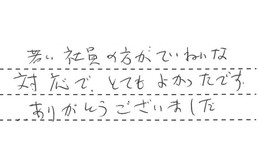 若い社員の方がていねいな
対応で、とてもよかったです。
ありがとうございました